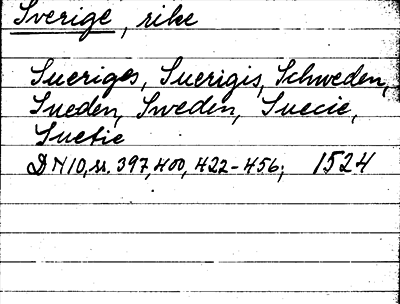 Sverige, rike
Sueriges, Suerigis, Schweden,
Sueden, Sweden, Suecie,
Suetie
DN10, nr. 397, 400, 422-456; 1524